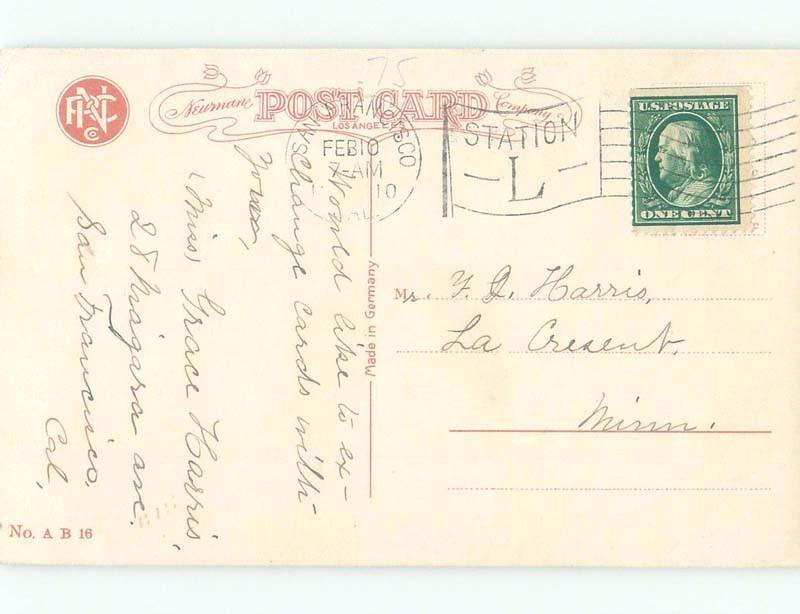 75
Newman POST CARD Company
LOS ANGELES
SAN FRANCISCO
FEB 10
7-AM
10
CAL.
STATION
L
U.S. POSTAGE
ONE CENT
Would like to ex-
change cards with
you,
(Miss) Grace Harris,
28 Niagara ave.
San Francisco,
Cal,
Made in Germany
Mr. F. D. Harris,
La Cresent,
Minn.
No. A B 16